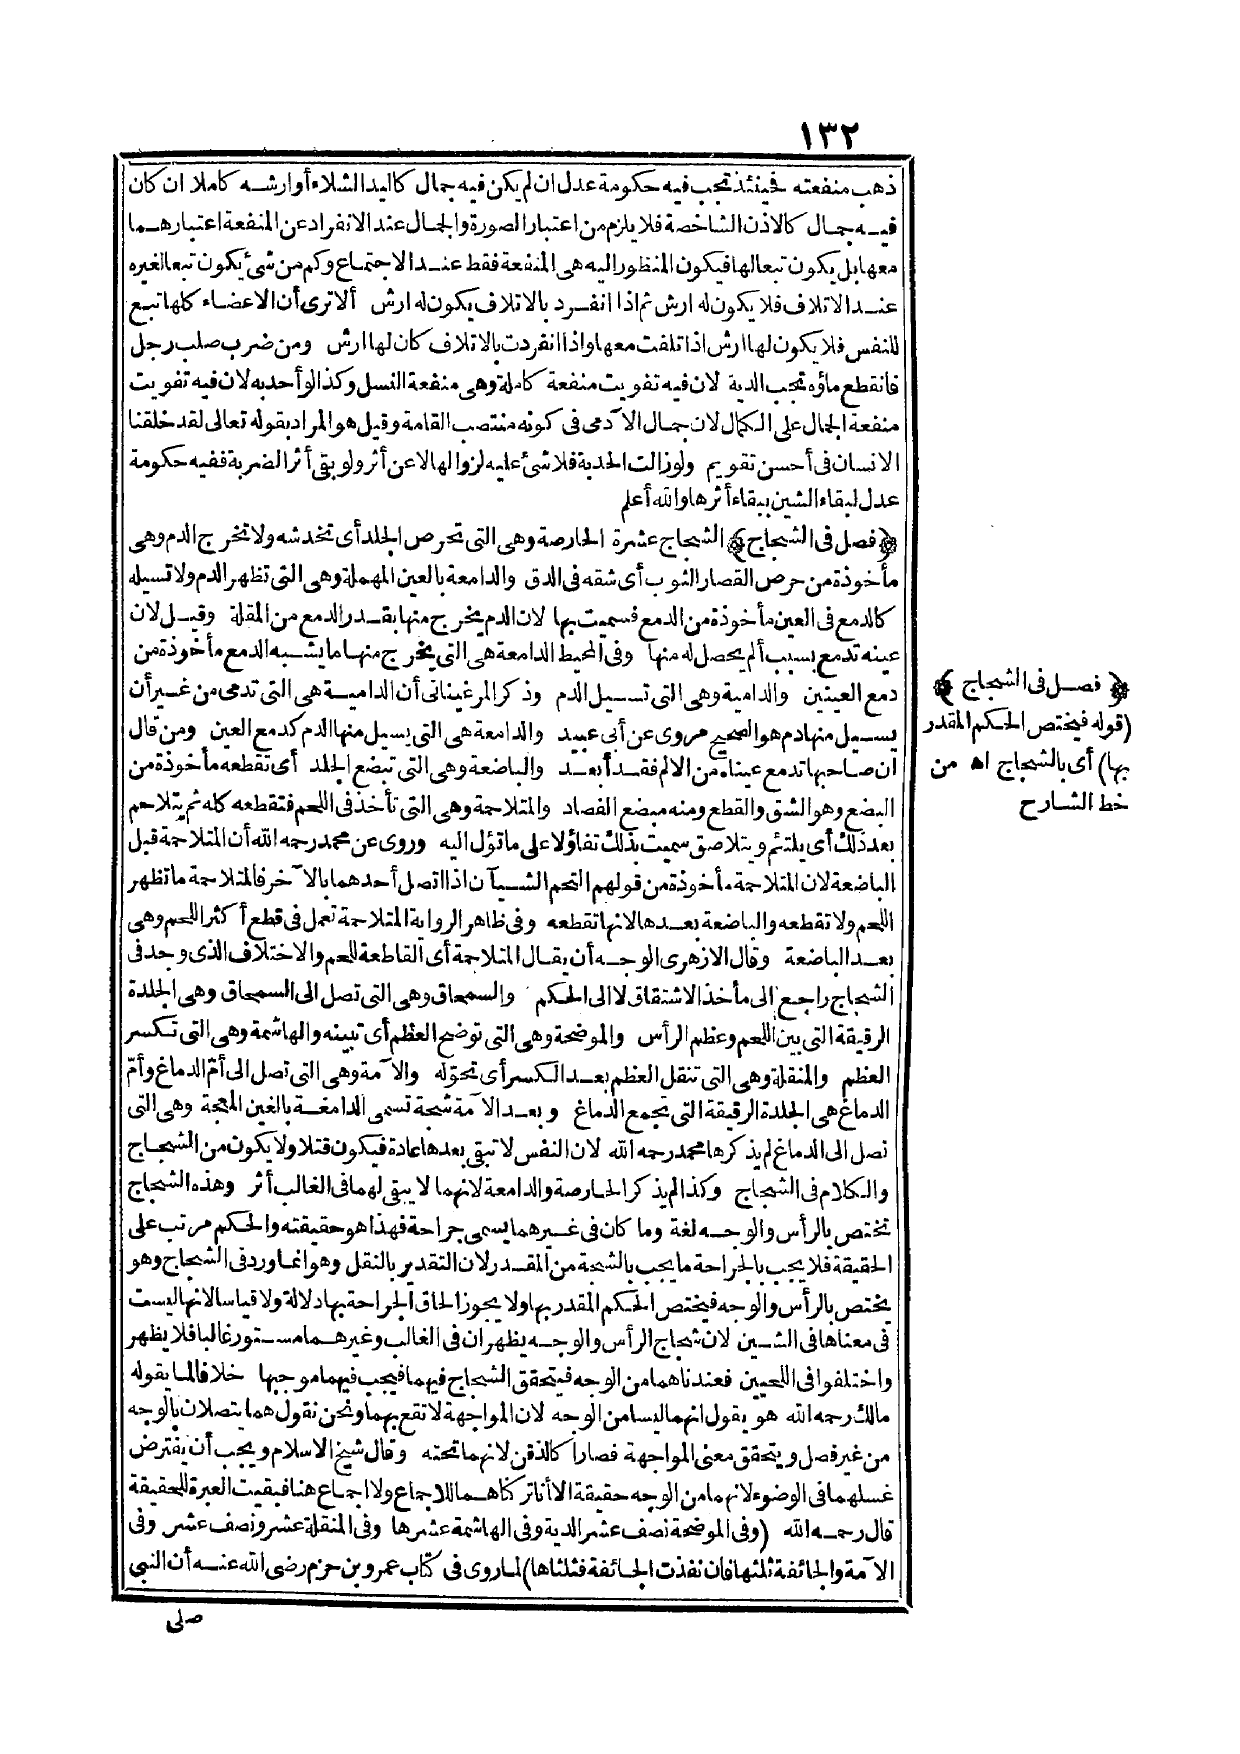 ١٣٢
ذهب منفعته فحينئذ تجب فيه حكومة عدل ان لم يكن فيه جمال كاليد الشلاء أو ارشه كاملا ان كان
فيه جمال كالاذن الشاخصة فلا يلزم من اعتبار الصورة والجمال عند الانفراد عن المنفعة اعتبارهما
معها بل يكون تبعا لها فيكون المنظور اليه هى المنفعة فقط عند الاجتماع وكم من شئ يكون تبعا لغيره
عند الاتلاف فلا يكون له ارش ثم اذا انفرد بالاتلاف يكون له ارش ألا ترى أن الاعضاء كلها تبع
للنفس فلا يكون لها ارش اذا تلفت معها واذا انفردت بالاتلاف كان لها ارش ومن ضرب صلب رجل
فانقطع ماؤه تجب الدية لان فيه تفويت منفعة كاملة وهى منفعة النسل وكذا لو أحدبه لان فيه تفويت
منفعة الجمال على الكمال لان جمال الآدمى فى كونه منتصب القامة وقيل هو المراد بقوله تعالى لقد خلقنا
الانسان فى أحسن تقويم ولو زالت الحدبة فلا شئ عليه لزوالها لا عن أثر ولو بقى أثر الضربة ففيه حكومة
عدل لبقاء الشين ببقاء أثرها والله أعلم
﴿فصل فى الشجاج﴾ الشجاج عشرة الحارصة وهى التى تحرص الجلد أى تخدشه ولا تخرج الدم وهى
مأخوذة من حرص القصار الثوب أى شقه فى الدق والدامعة بالعين المهملة وهى التى تظهر الدم ولا تسيله
كالدمع فى العين مأخوذة من الدمع فسميت بها لان الدم يخرج منها بقدر الدمع من المقلة وقيل لان
عينه تدمع بسبب ألم يحصل له منها وفى المحيط الدامعة هى التى يخرج منها ما يشبه الدمع مأخوذة من
دمع العينين والدامية وهى التى تسيل الدم وذكر المرغينانى أن الدامية هى التى تدمى من غير أن
يسيل منها دم هو الصحيح مروى عن أبى عبيد والدامعة هى التى يسيل منها الدم كدمع العين ومن قال
ان صاحبها تدمع عيناه من الالم فقد أبعد والباضعة وهى التى تبضع الجلد أى تقطعه مأخوذة من
البضع وهو الشق والقطع ومنه مبضع الفصاد والمتلاحمة وهى التى تأخذ فى اللحم فتقطعه كله ثم يتلاحم
بعد ذلك أى يلتئم ويتلاصق سميت بذلك تفاؤلا على ما تؤل اليه وروى عن محمد رحمه الله أن المتلاحمة قبل
الباضعة لان المتلاحمة مأخوذة من قولهم التحم الشيآن اذا اتصل أحدهما بالآخر فالمتلاحمة ما تظهر
اللحم ولا تقطعه والباضعة بعدها لانها تقطعه وفى ظاهر الرواية المتلاحمة تعمل فى قطع أكثر اللحم وهى
بعد الباضعة وقال الازهرى الوجه أن يقال المتلاحمة أى القاطعة للحم والاختلاف الذى وجد فى
الشجاج راجع الى مأخذ الاشتقاق لا الى الحكم والسمحاق وهى التى تصل الى السمحاق وهى الجلدة
الرقيقة التى بين اللحم وعظم الرأس والموضحة وهى التى توضح العظم أى تبينه والهاشمة وهى التى تكسر
العظم والمنقلة وهى التى تنقل العظم بعد الكسر أى تحوّله والآمة وهى التى تصل الى أمّ الدماغ وأمّ
الدماغ هى الجلدة الرقيقة التى تجمع الدماغ وبعد الآمة شجة تسمى الدامغة بالغين المعجمة وهى التى
تصل الى الدماغ لم يذكرها محمد رحمه الله لان النفس لا تبقى بعدها عادة فيكون قتلا ولا يكون من الشجاج
والكلام فى الشجاج وكذا لم يذكر الحارصة والدامعة لانهما لا يبقى لهما فى الغالب أثر وهذه الشجاج
تختص بالرأس والوجه لغة وما كان فى غيرهما يسمى جراحة فهذا هو حقيقته والحكم مرتب على
الحقيقة فلا يجب بالجراحة ما يجب بالشجة من المقدر لان التقدير بالنقل وهو انما ورد فى الشجاج وهو
يختص بالرأس والوجه فيختص الحكم المقدر بها ولا يجوز الحاق الجراحة بها دلالة ولا قياسا لانها ليست
فى معناها فى الشين لان شجاج الرأس والوجه يظهران فى الغالب وغيرهما مستور غالبا فلا يظهر
واختلفوا فى اللحيين فعندنا هما من الوجه فيتحقق الشجاج فيهما فيجب فيهما موجبها خلافا لما يقوله
مالك رحمه الله هو يقول انهما ليسا من الوجه لان المواجهة لا تقع بهما ونحن نقول هما يتصلان بالوجه
من غير فصل ويتحقق معنى المواجهة فصارا كالذقن لانهما تحته وقال شيخ الاسلام ويجب أن يفترض
غسلهما فى الوضوء لانهما من الوجه حقيقة الا أنا تركناهما للاجماع ولا اجماع هنا فبقيت العبرة للحقيقة
قال رحمه الله (وفى الموضحة نصف عشر الدية وفى الهاشمة عشرها وفى المنقلة عشر ونصف عشر وفى
الآمة والجائفة ثلثها فان نفذت الجائفة فثلثاها) لما روى فى كتاب عمرو بن حزم رضى الله عنه أن النبى
صلى
﴿فصل فى الشجاج﴾
(قوله فيختص الحكم المقدر
بها) أى بالشجاج اه من
خط الشارح